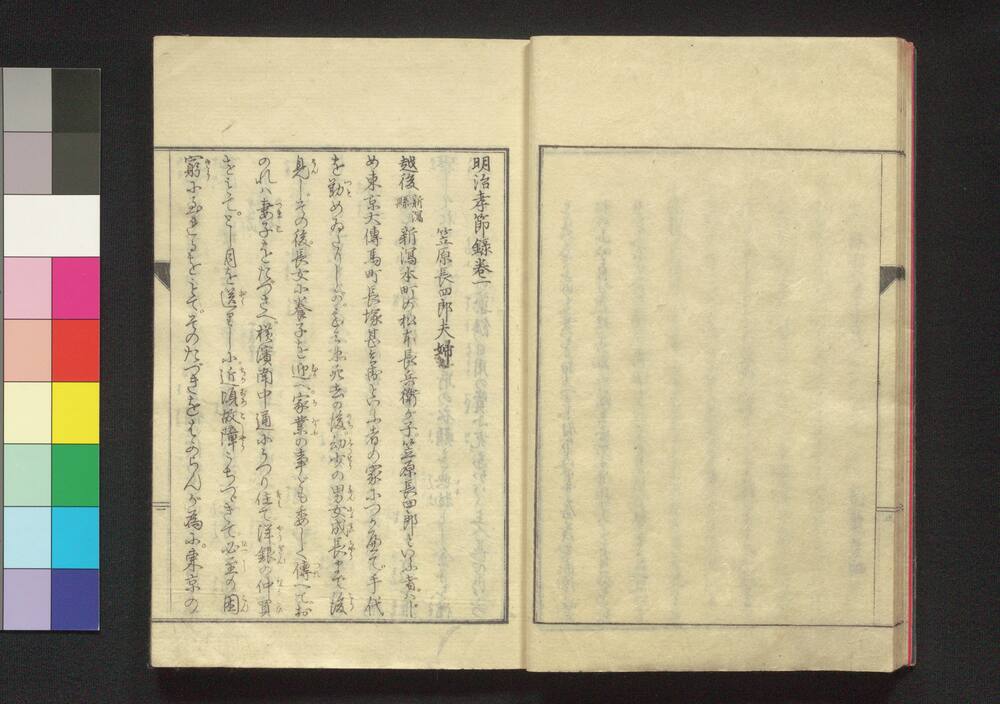 明治孝節録巻一
笠原長四郎夫婦
越後新潟縣新潟本町の松本長兵衛が子笠原長四郎といふ者はじ
め東京大傳馬町長塚甚兵衛といふ者の家につかへて手代
を勤めゐたりしが甚兵衛死去の後幼少の男女成長まで後
見しその後長女に養子を迎へ家業の事ども委しく傳へてお
のれハ妻子をたづさへ横濱南中通にうつり住て洋銀の仲買
をもてとし月を送りしに近頃故障うちつづきて必至の困
窮に至れるをもてそのたづきをもはからんが為に東京の